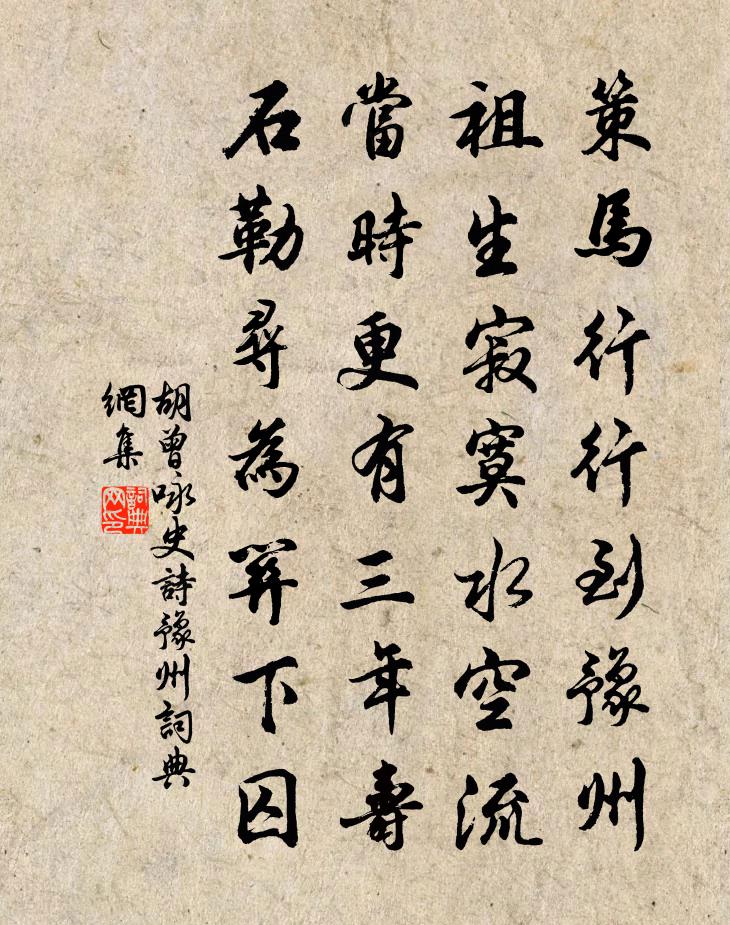 策馬行行到豫州
祖生寂寞水空流
當時更有三年壽
石勒尋為關下囚
胡曾咏史詩豫州詞典
網集
詞典
网印